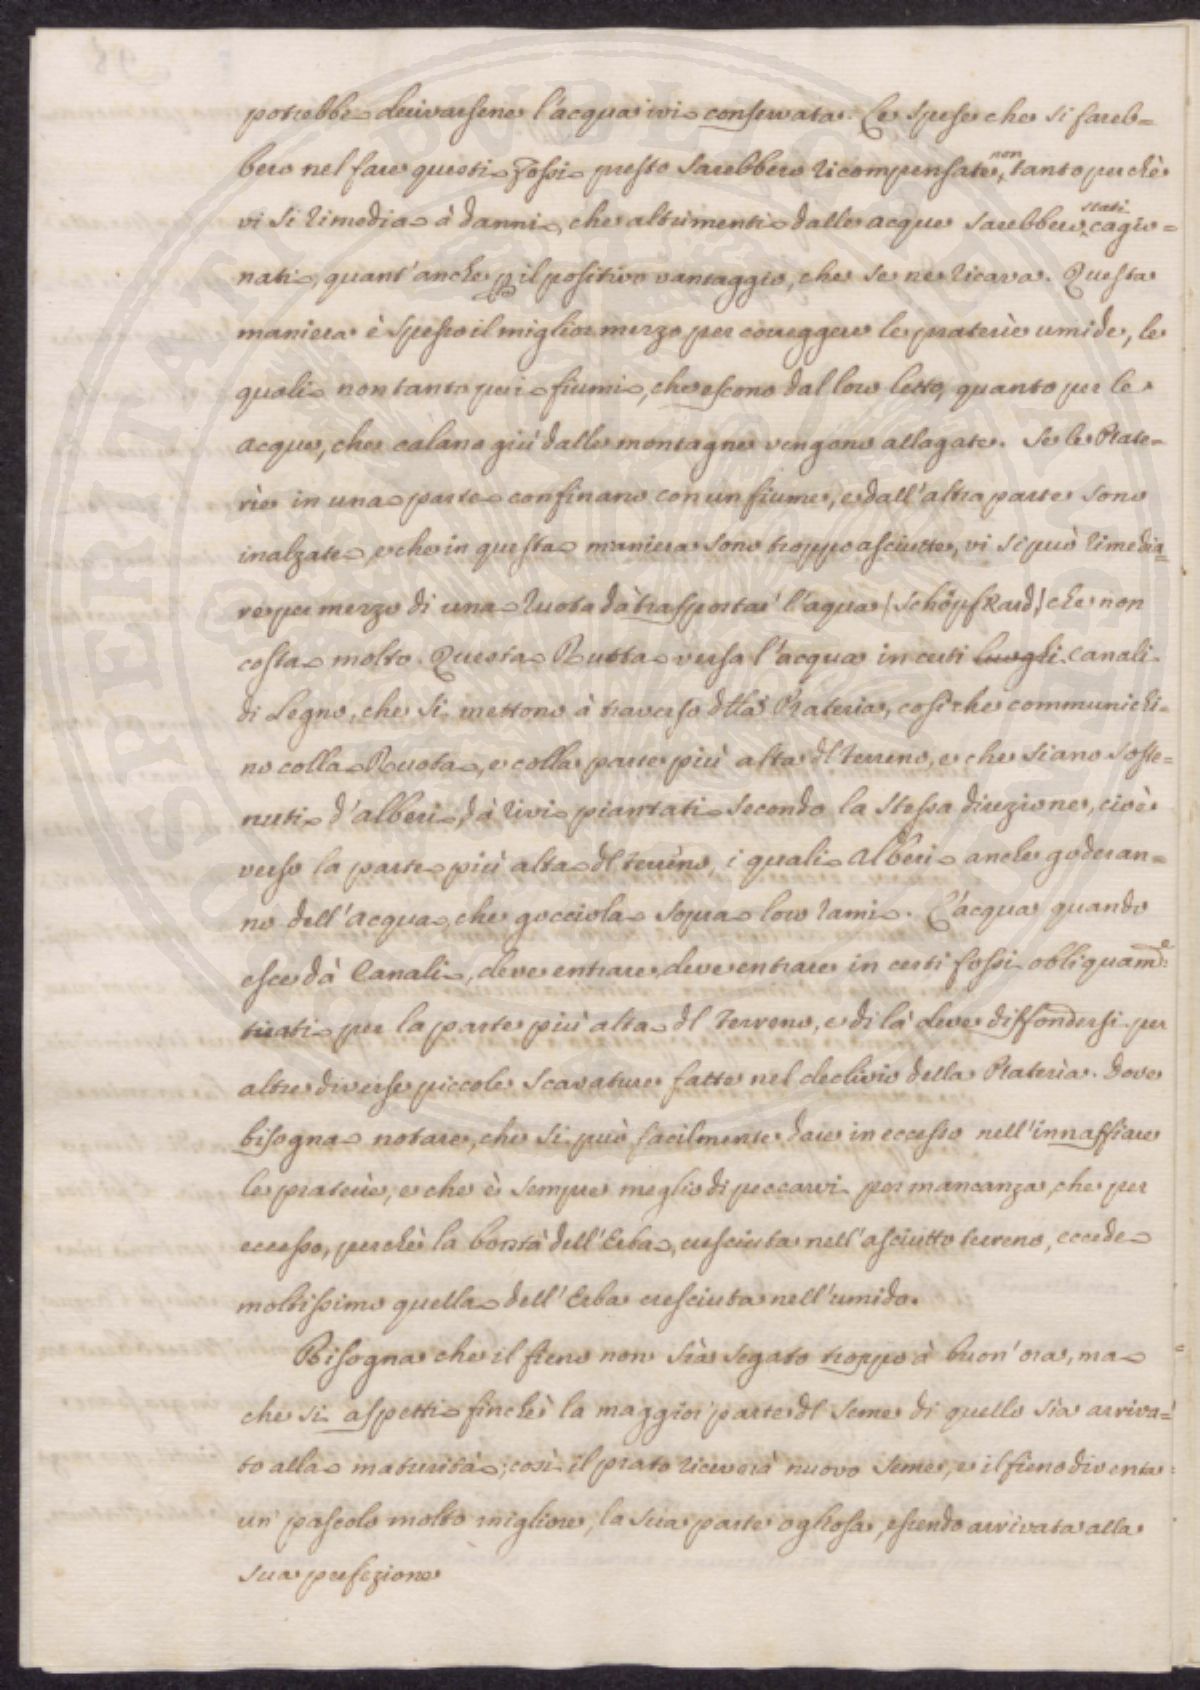 potrebbe derivarsene l'acqua ivi conservata. Le spese che si fareb=
bero nel fare questi Fossi presto sarebbero ricompensate, non tanto perchè
vi si rimedia à danni, che altrimenti dalle acque sarebbero stati cagio=
nati, quant'anche p il positivo vantaggio, che se ne ricava. Questa
maniera è spesso il miglior mezzo per correggere le praterie umide, le
quali non tanto per fiumi, che escono dal loro letto, quanto per le
acque, che calano giù dalle montagne vengono allagate. Se le Prate=
rìe in una parte confinano con un fiume, e dall'altra parte sono
inalzate, e che in questa maniera sono troppo asciutte, vi si può rimedia=
re per mezzo di una Ruota dà trasportar l'aqua (SchöpfRard) che non
costa molto. Questa Ruota versa l'acqua in certi luoghi canali
di Legno, che si mettono à traverso dlla Prateria, cosicche communichi=
no colla Ruota, e colla parte più alta dl terreno, e che siano soste=
nuti d'alberi, dà rivi piantati secondo la stessa direzione, cioè
verso la parte più alta dl terreno, i quali alberi anche goderan=
no dell'acqua, che gocciola sopra loro rami. L'acqua quando
esce dà Canali, deve entrare, deve entrare in certi fossi obliquam.e
tirati per la parte più alta dl Terreno, e di là deve diffondersi per
altre diverse piccole scavature fatte nel declivio della Prateria. Dove
bisogna notare, che si può facilmente dare in eccesso nell'innaffiare
le praterie, e che è sempre meglio di peccarvi per mancanza, che per
eccesso, perchè la bontà dell'Erba, cresciuta nell'asciutto terreno, eccede
moltissimo quella dell'Erba cresciuta nell'umido.
Bisogna che il fieno non sia segato troppo à buon'ora, ma
che si aspetti finchè la maggior parte dl seme di quello sìa arriva=
to alla maturità; così il prato riceverà nuovo seme, e il fieno diventa
un' pascolo molto migliore, la sua parte ogliosa, essendo arrivata alla
sua perfezione
PROSPERITATI PUBLICAE